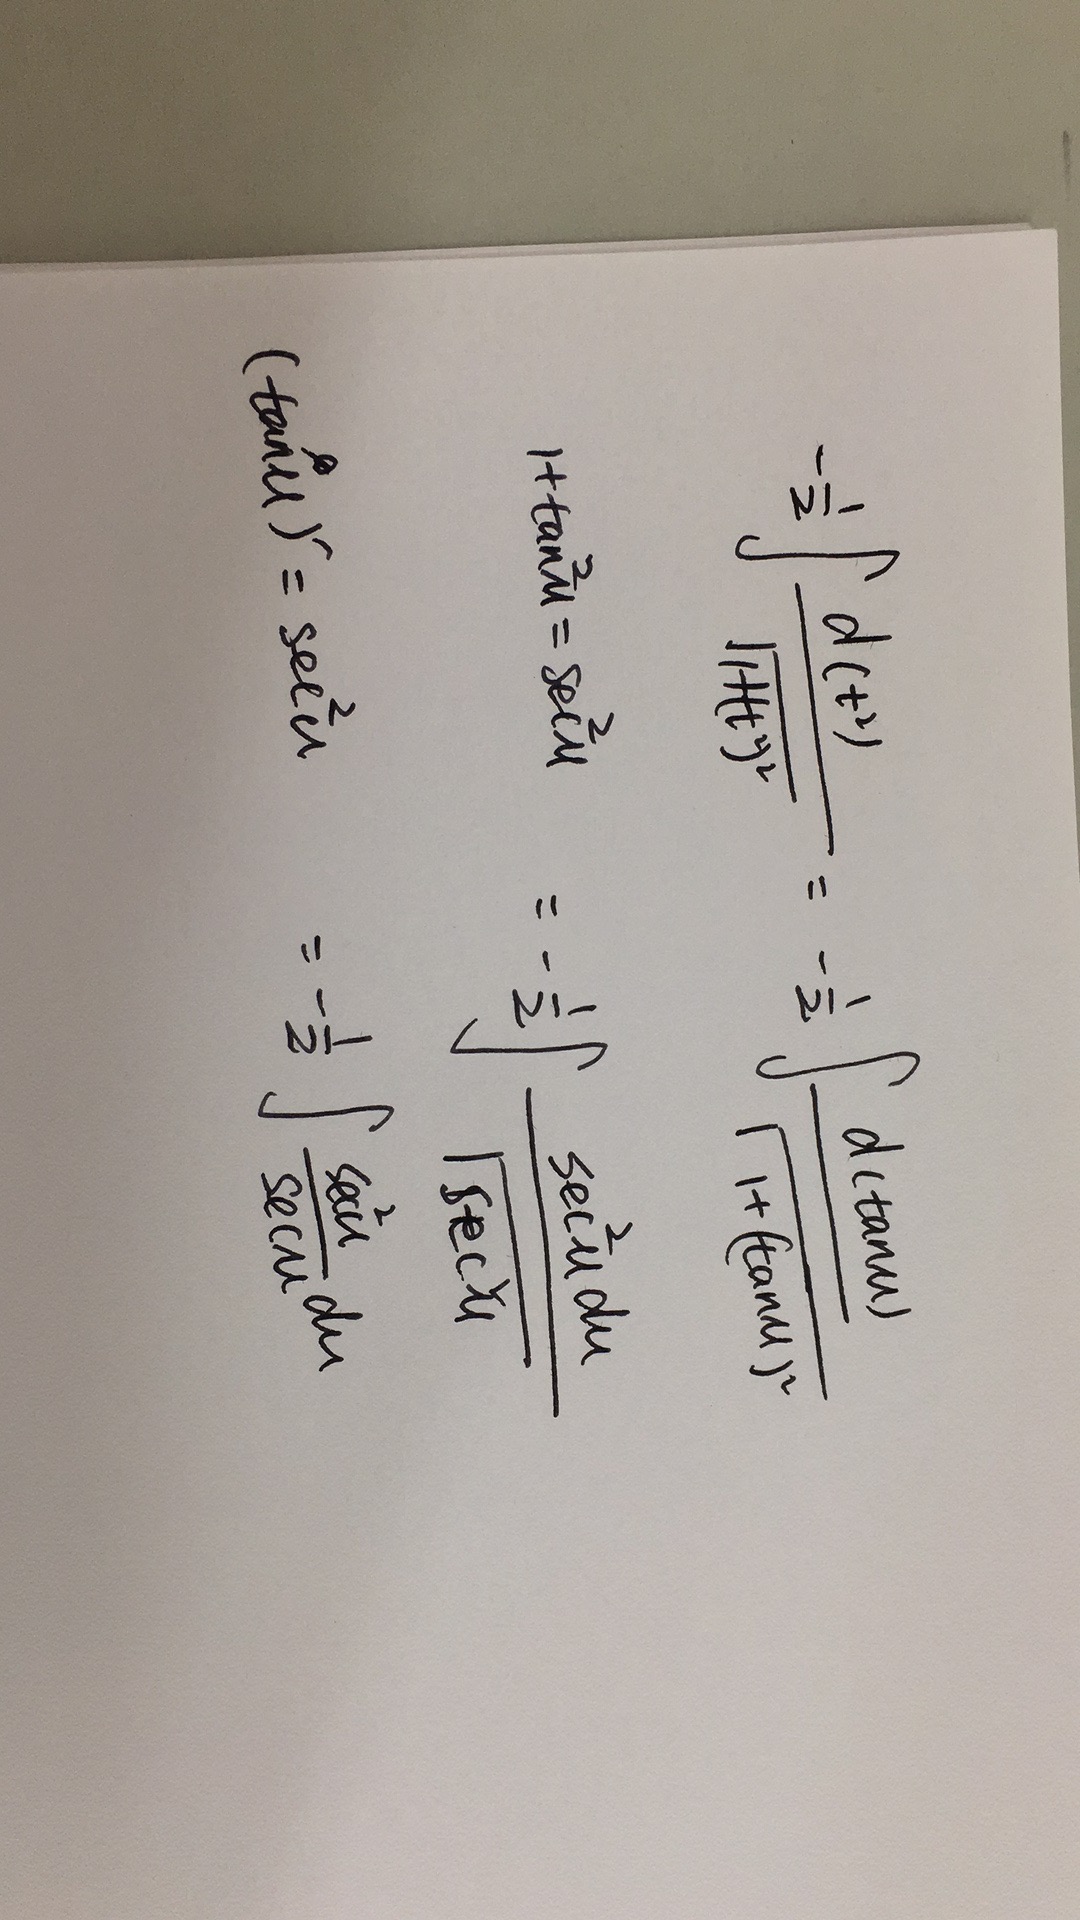 -1/2 ∫ d(t²) / √(1+(t²)²) = -1/2 ∫ d(tanu) / √(1+(tanu)²)
1+tan²u = sec²u = -1/2 ∫ sec²u du / √(sec²u)
(tanu)' = sec²u = -1/2 ∫ sec²u / secu du